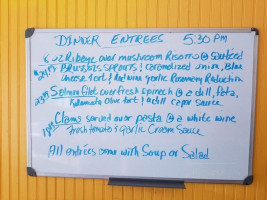 DINNER ENTREES 5:30 PM
Ribeye over mushroom Risotto @ sauteed
BRUSSELS SPROUTS! Caramelized onion, Blue
cheese tort! Red wine garlic Rosemary Reduction
Salmon filet over fresh spinach @ a dill, feta,
Kalamata Olive tort! a dill caper sauce
Clams served over pasta @ a white wine
Fresh tomato & garlic Cream Sauce
All entrées come with Soup or Salad